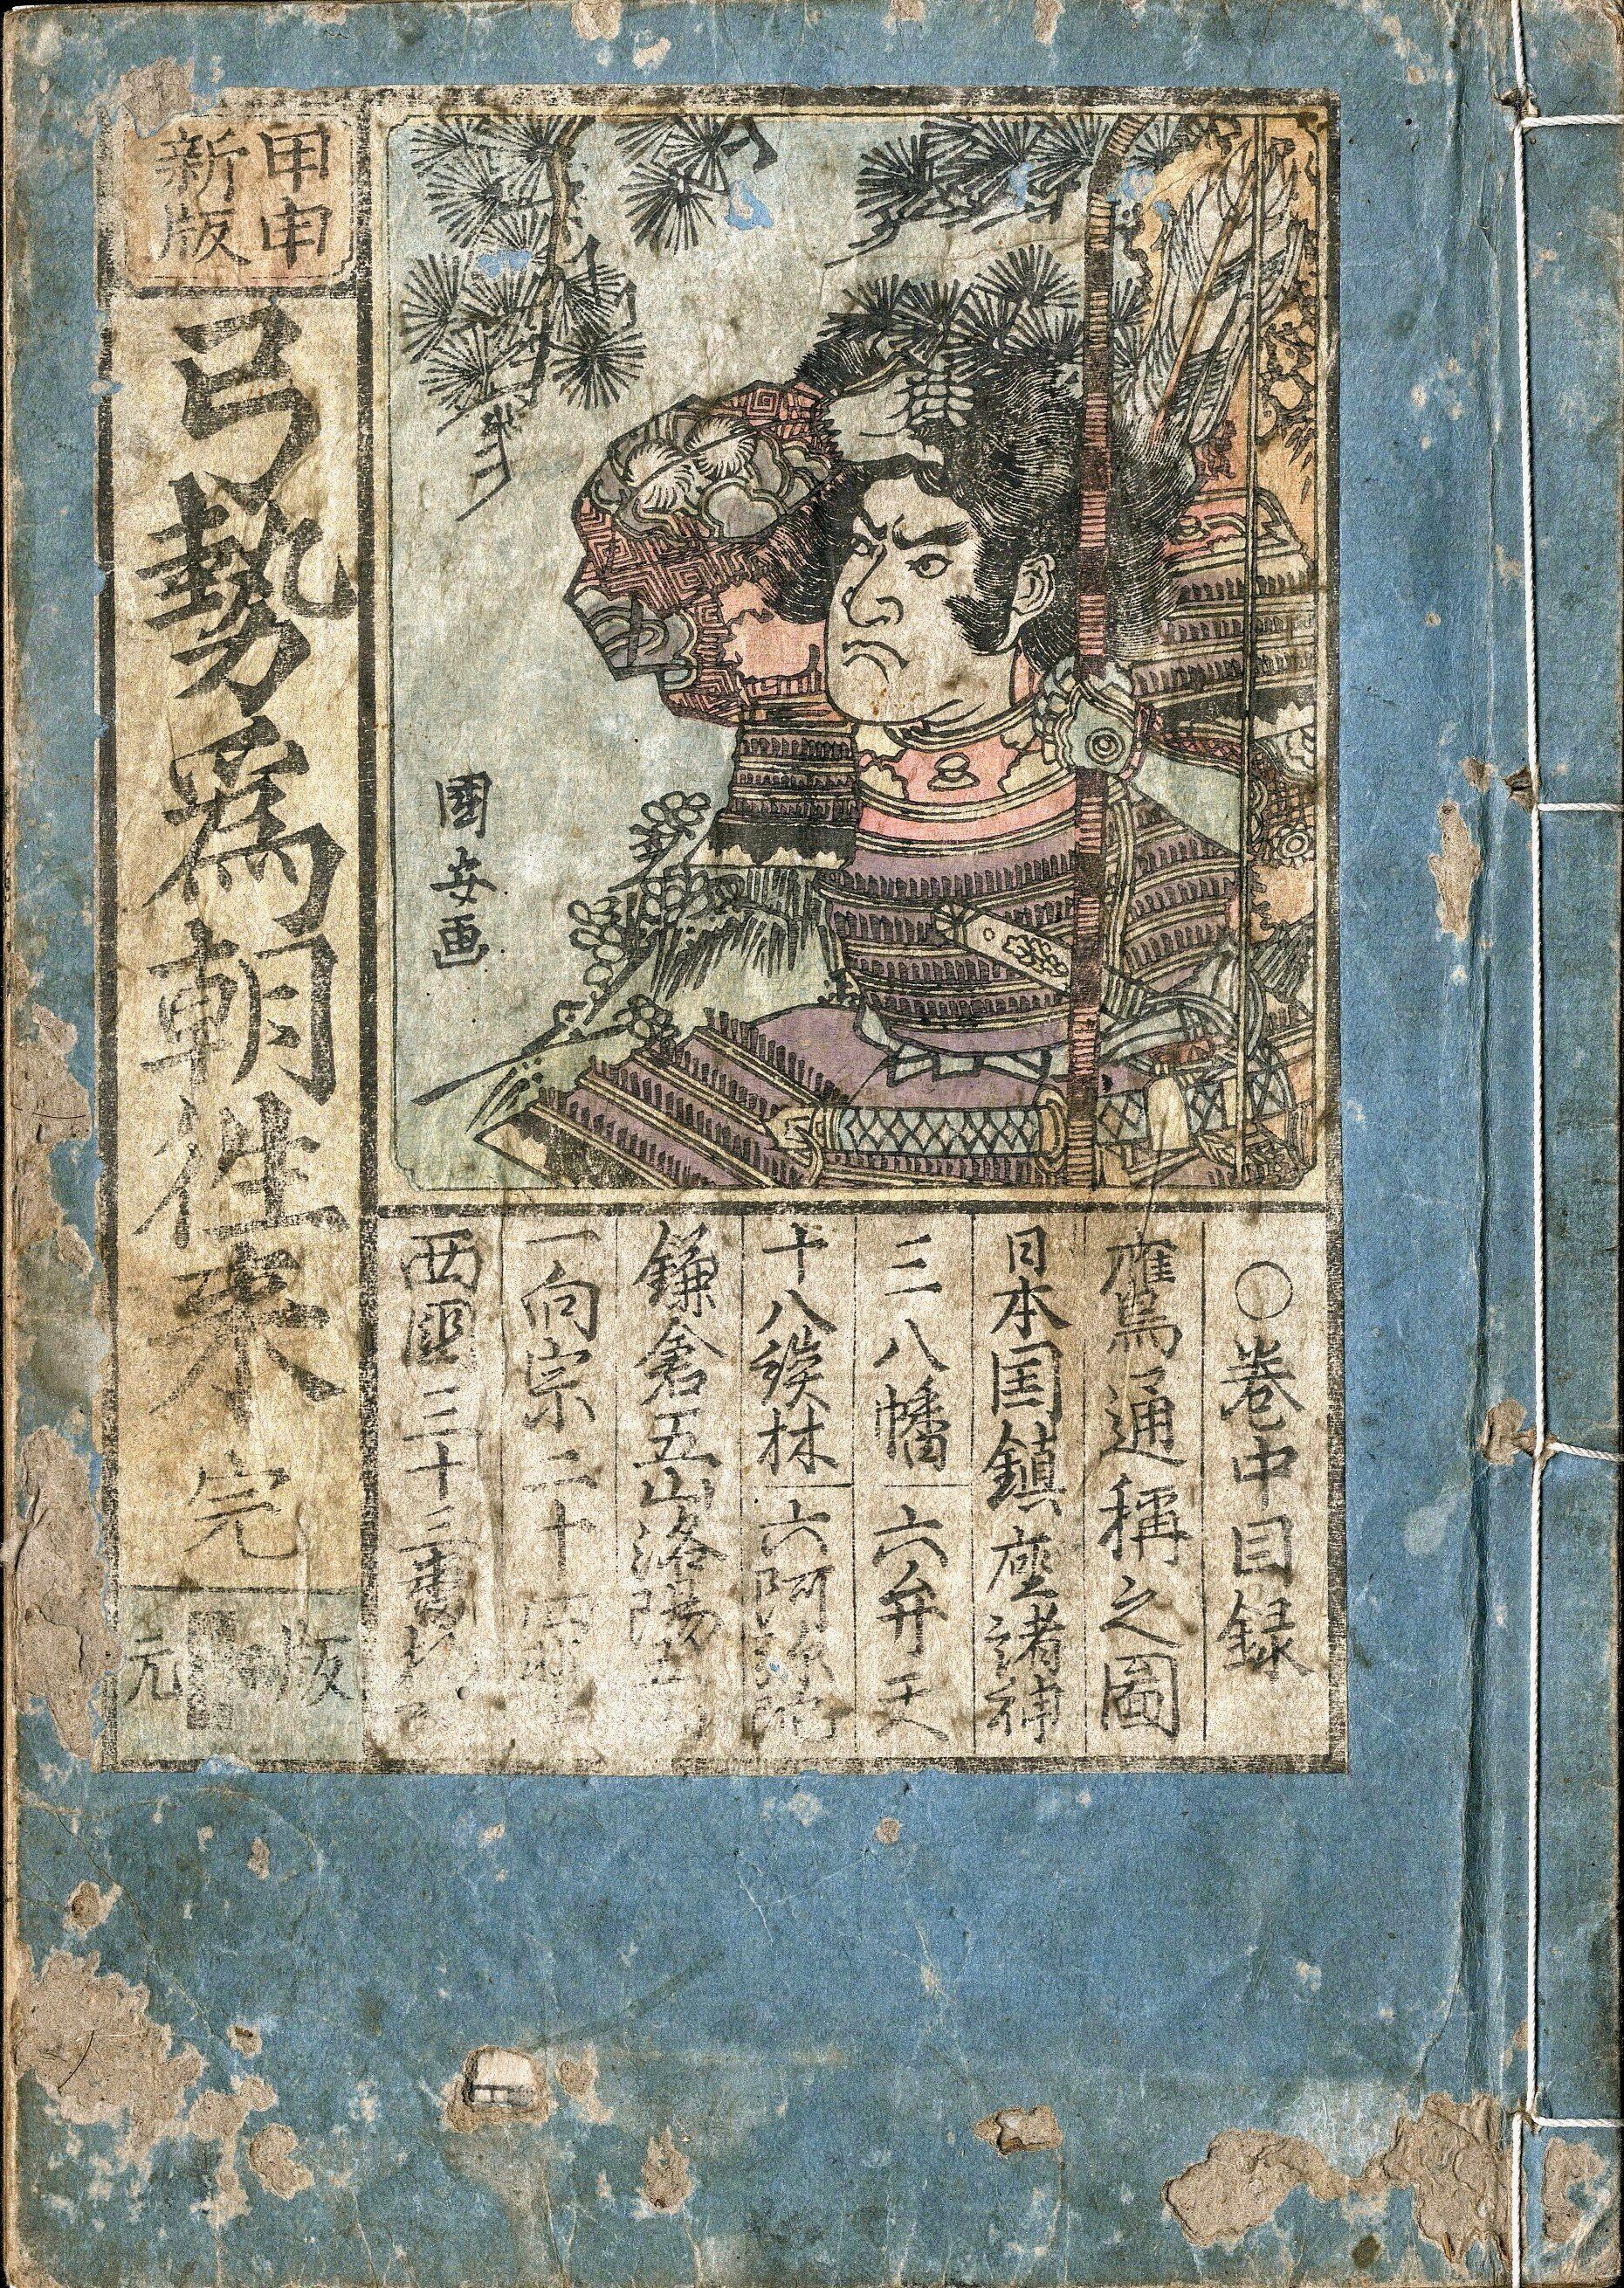 甲申
新版
弓勢為朝往来 完
版元
國安画
〇巻中目録
鷹通称之圖
日本国鎮座諸神
三八幡 六弁天
十八談林 六阿弥陀
鎌倉五山洛陽五山
一向宗二十四輩
西国三十三番